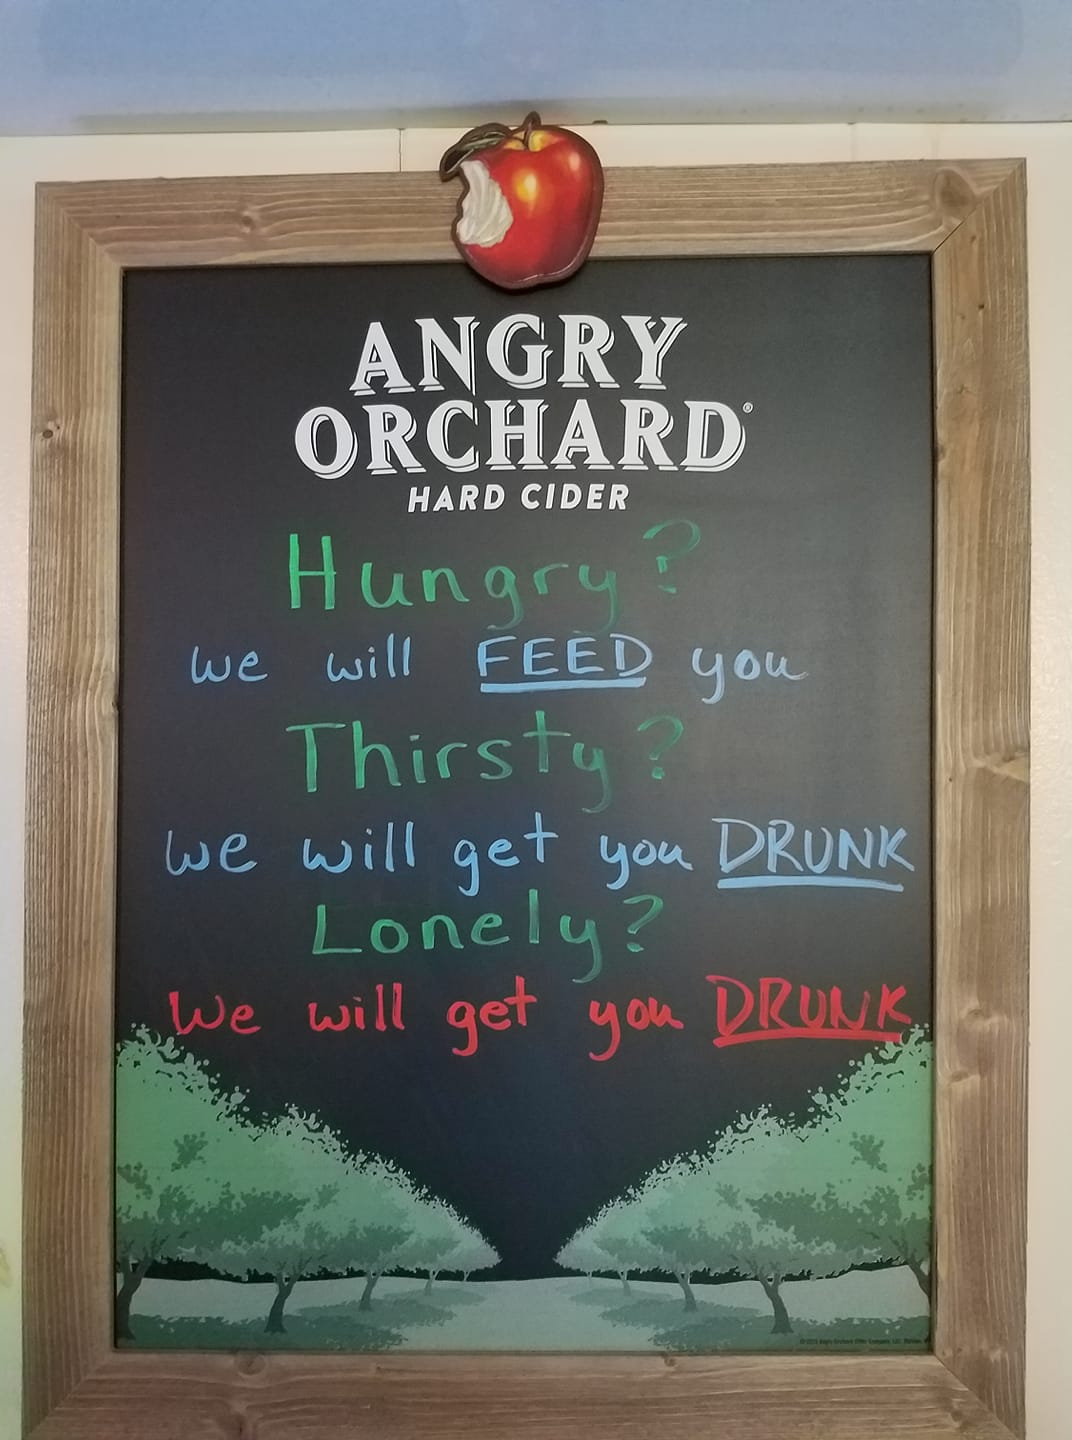 ANGRY
ORCHARD®
HARD CIDER
Hungry?
we will FEED you
Thirsty?
we will get you DRUNK
Lonely?
We will get you DRUNK